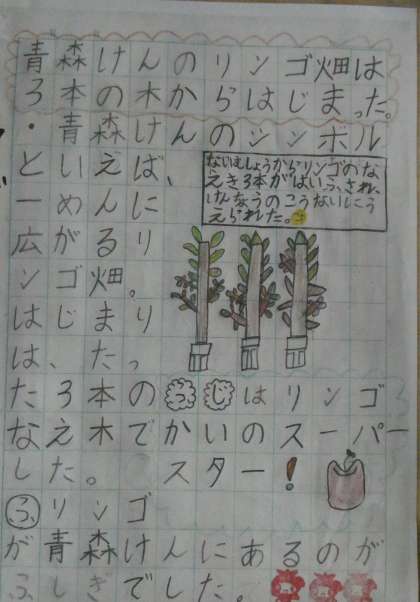 青森けんのリンゴ畑は
3本の木からはじまった。
・青森けんのシンボル
といえば、
一めんに
広がるリ
ンゴ畑。
はじまり
は、たっ
た3本の
なえ木で
した。
ないむしょうからリンゴのな
えき3本がはいふされ、
のこうないに
えられた。
ふじはリンゴ
かいのスーパー
スター!
ふリンゴ
が青森けんにあるのが
ふしぎでした。